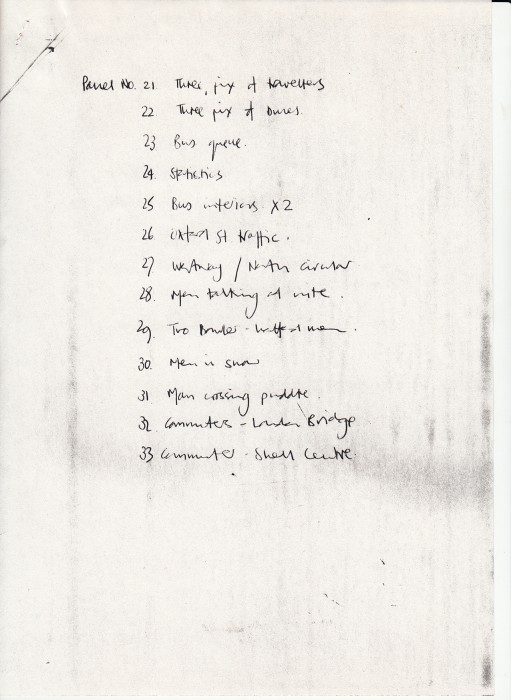 Panel No. 21. Three pix of travellers
22 Three pix of
23 Bus queue.
24. Statistics
25 Bus interiors X2
26. Oxford St traffic.
27 Westway / North Circular
28. Man talking at
29. Two
30. Men in snow
31 Man crossing puddle.
32 Commuters - London Bridge
33 Commuter - Shell Centre.